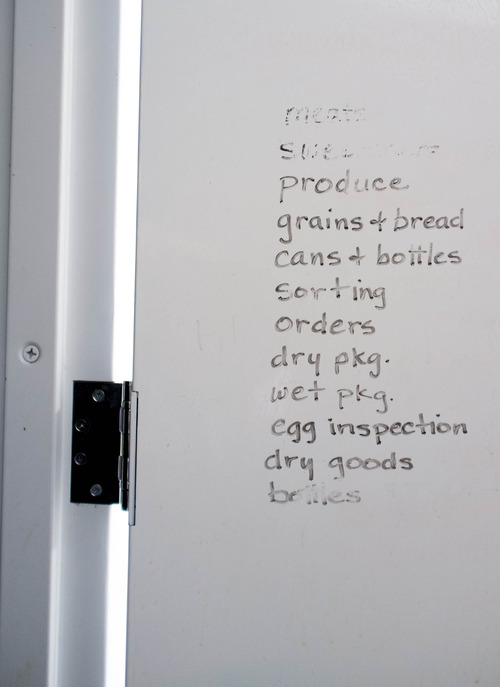 meats
produce
grains & bread
cans & bottles
sorting
orders
dry pkg.
wet pkg.
egg inspection
dry goods
bottles